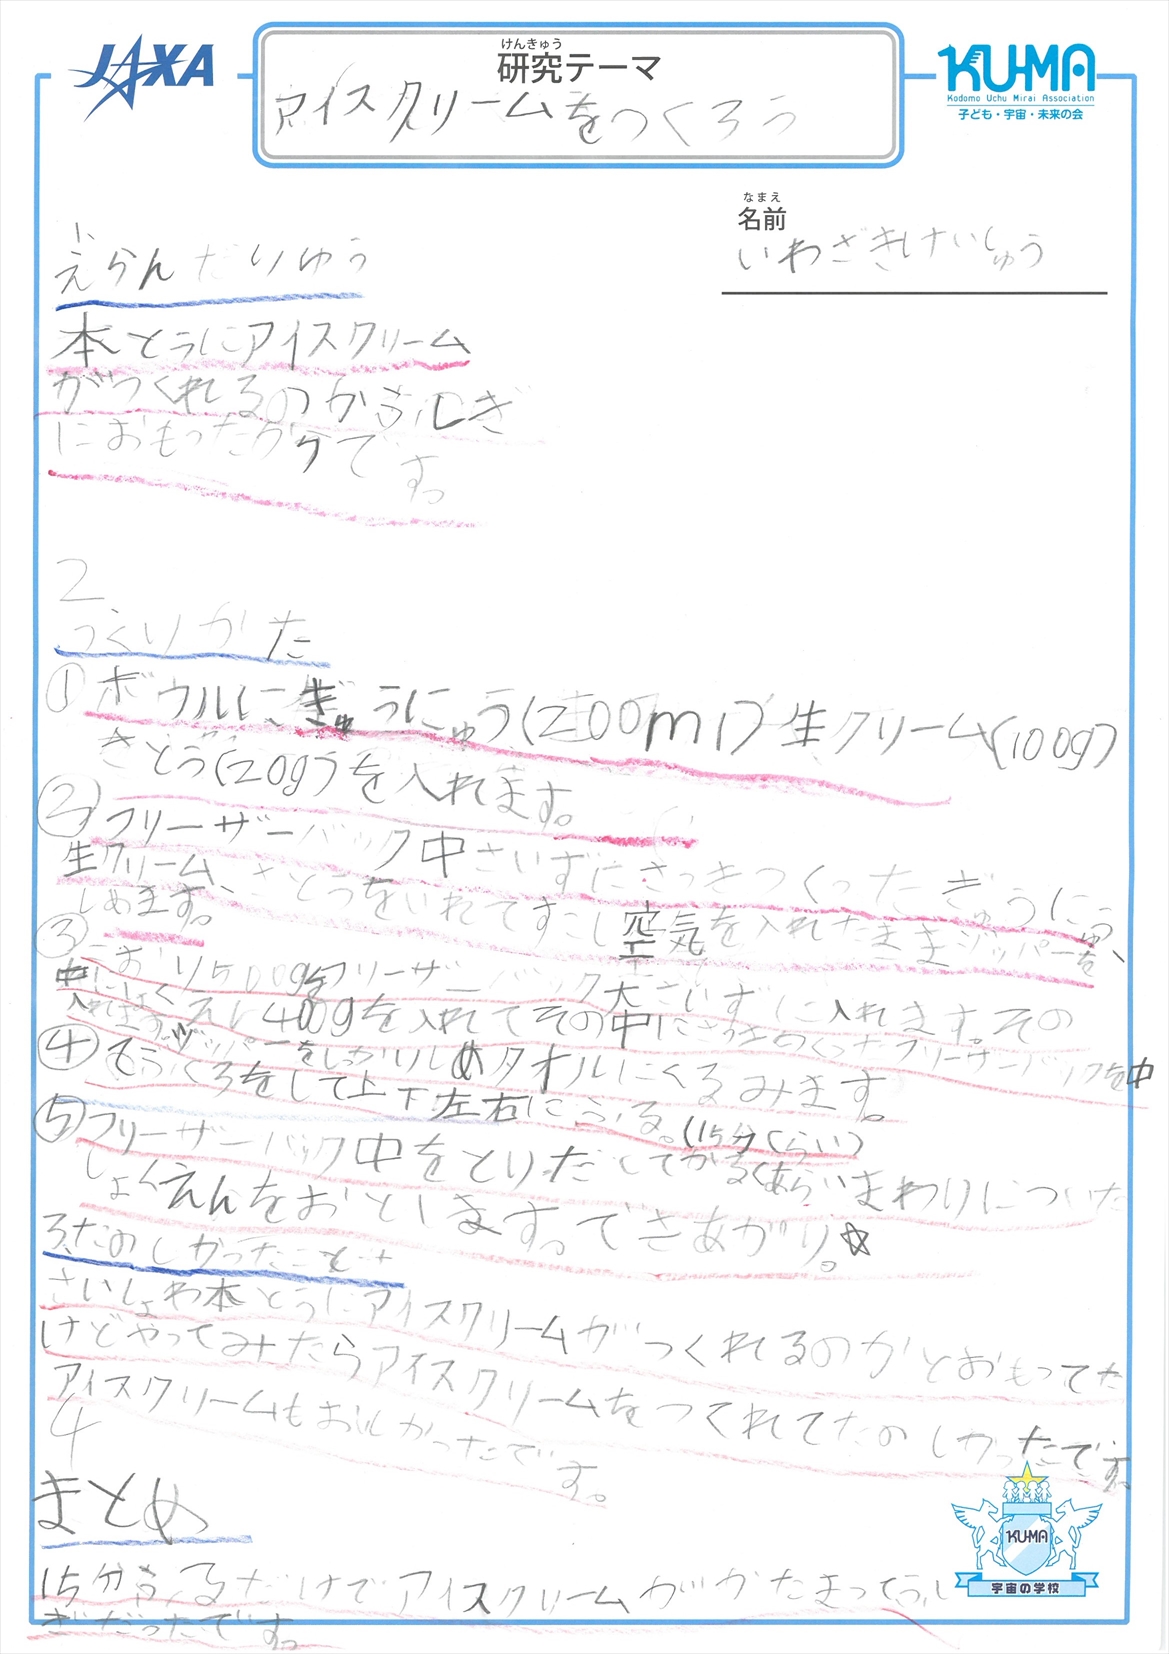 JAXA
けんきゅう
研究テーマ
アイスクリームをつくろう
KU-MA
Kodomo Uchu Mirai Association
子ども・宇宙・未来の会
なまえ
名前
いわざきけいしゅう
1、
えらんだりゆう
本とうにアイスクリーム
がつくれるのかふしぎ
におもったからで
す。
2
つくりかた
① ボウルにぎゅうにゅう(200ml)生クリーム(100g)
さとう(20g)を入れます。
② フリーザーバック中さいずにさっきつくったぎゅうにう、
生クリーム、さとうをいれてすこし空気を入れたままジッパーを
しめます。
③ こおり500gをフリーザーバック大さいずに入れます。その
中にしょくえん400gを入れてその中にさっきつくったフリーザーバックを中
入れます。
④ てぶくろをして上下左右にふる。(15分くらい)
ジッパーをしっかりしめタオルにくるみます。
⑤ フリーザーバック中をとりだしてかるくあらいまわりについた
しょくえんをおとします。できあがり。☆
3、たのしかったこと
さいしょわ本とうにアイスクリームがつくれるのかとおもってた
けどやってみたらアイスクリームをつくれてたのしかったです。
アイスクリームもおいしかったです。
4
まとめ
15分ふるだけでアイスクリームがかたまってふし
ぎだったです。
KU-MA
宇宙の学校